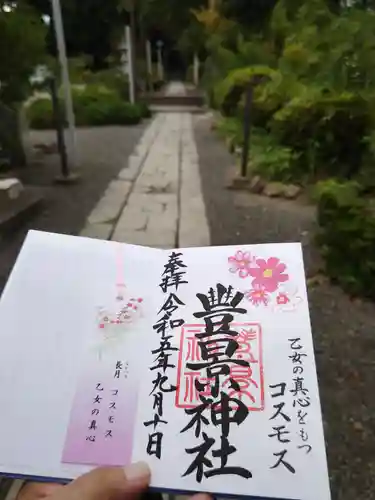 乙女の真心をもつ
コスモス
豐景神社
奉拝
令和五年九月十日
長月 コスモス
乙女の真心